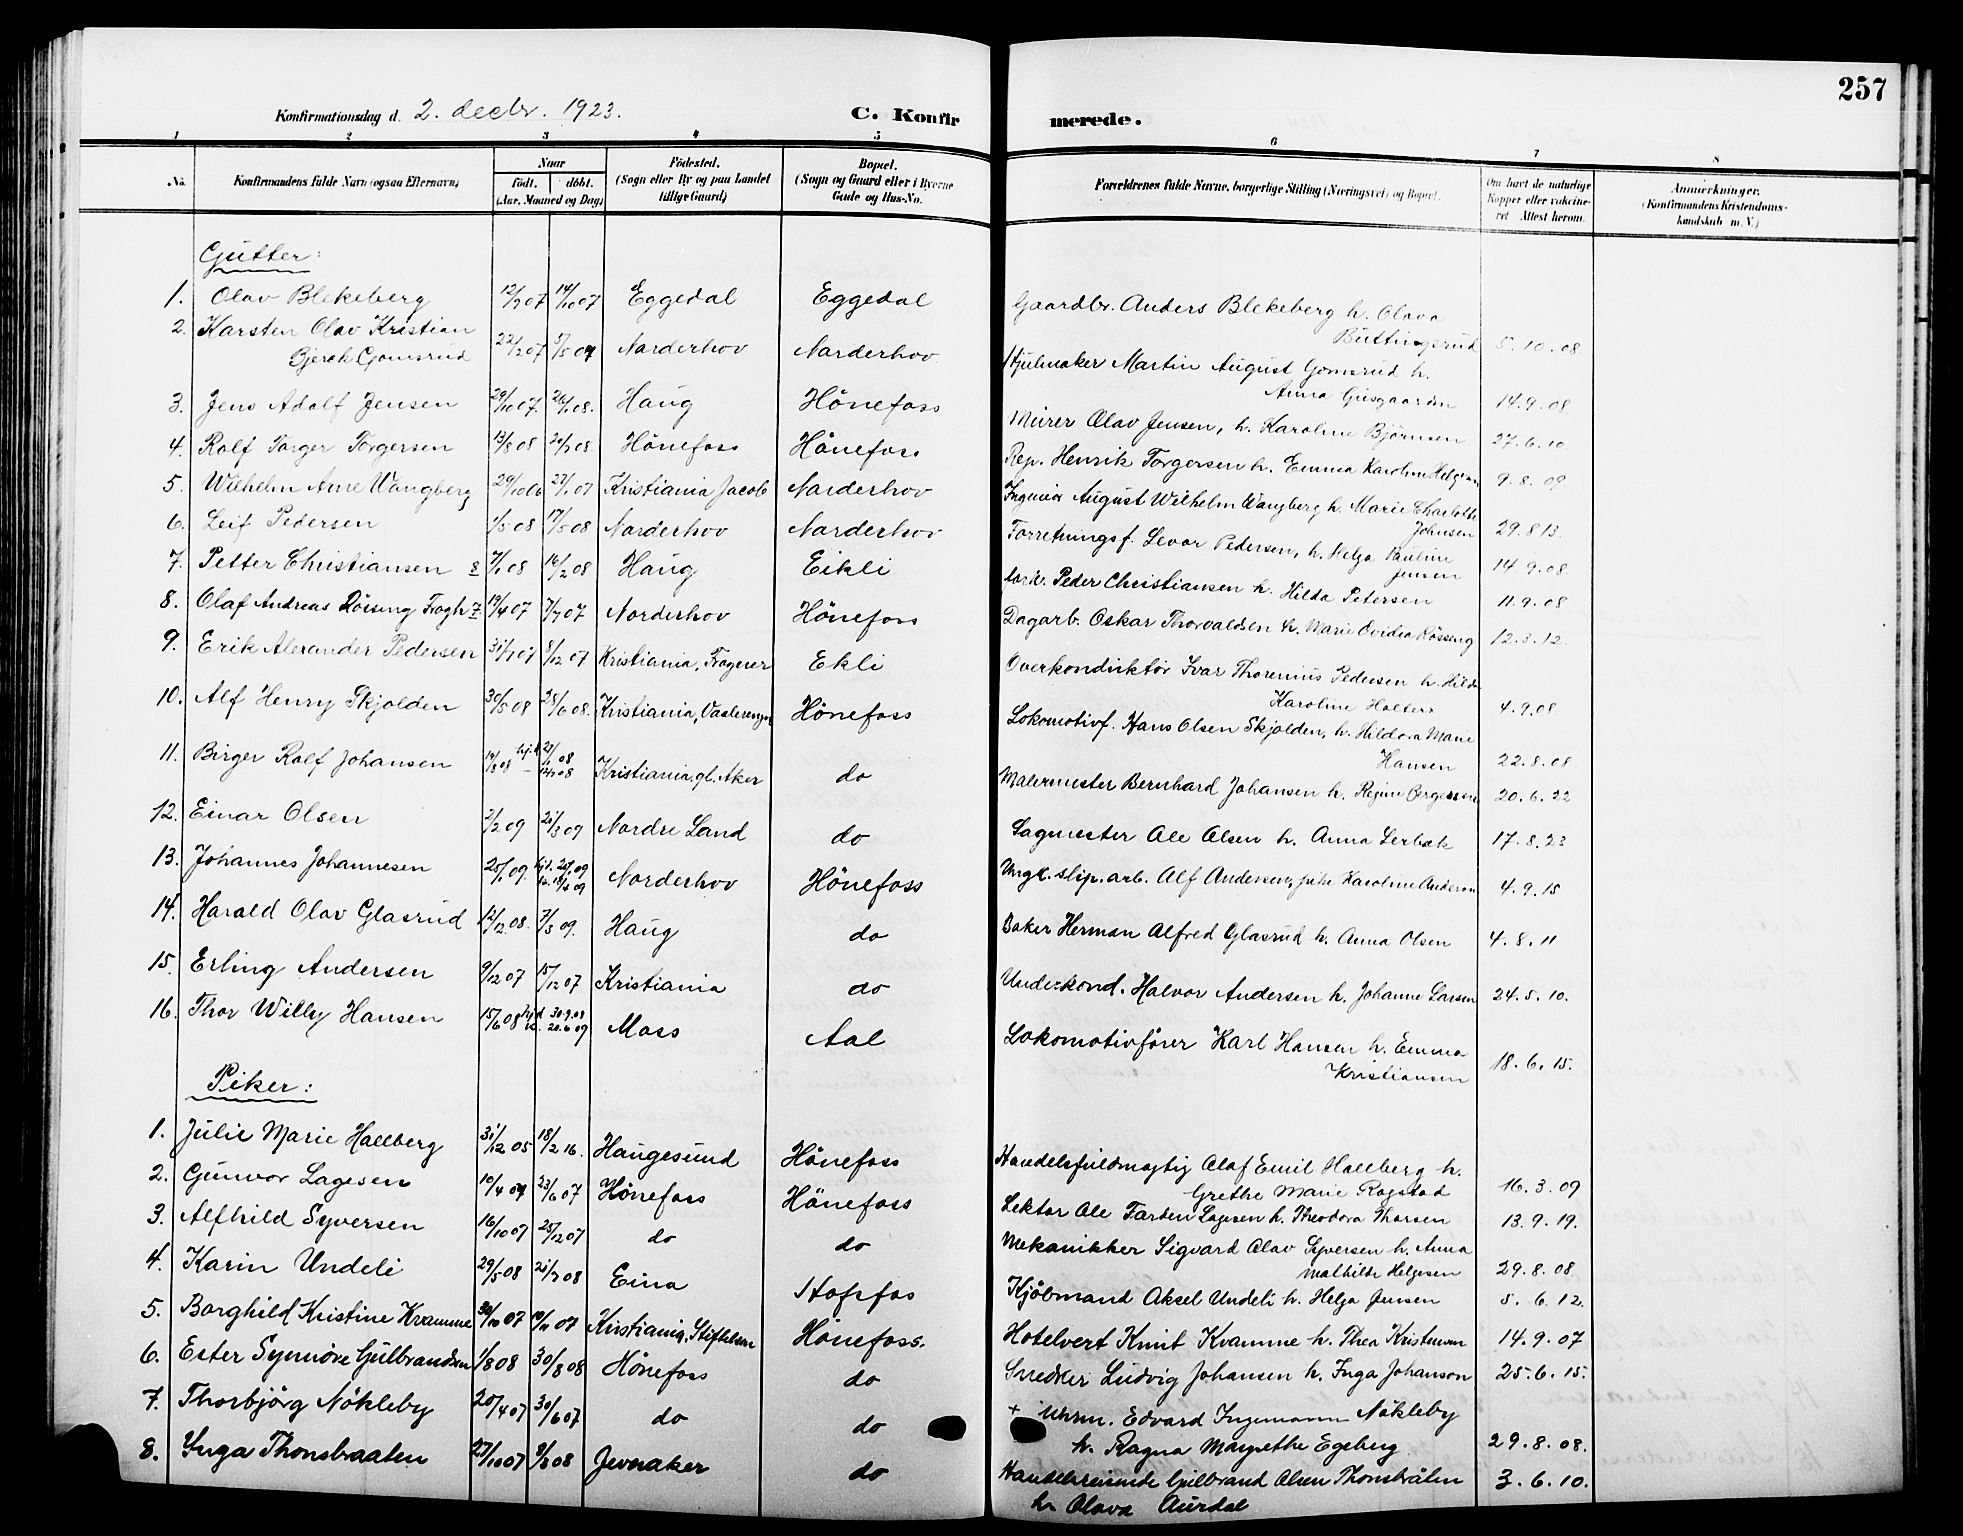 257
Konfirmationsdag d. 2. decbr. 1923.
C. Konfirmerede.
1 2 3 4 5 6 7 8
No. Konfirmandens fulde Navn (ogsaa Efternavn) Naar født. døbt. (Aar, Maaned og Dag) Fødested. (Sogn eller By og paa Landet tillige Gaard) Bopæl. (Sogn og Gaard eller i Byerne Gade og Hus-No. Forældrenes fulde Navne, borgerlige Stilling (Næringsvei) og Bopæl. Om havt de naturlige Kopper eller vakcineret Attest herom. Anmærkninger. (Konfirmandens Kristendomskundskab m. V.)
Gutter:
1. Olav Blekeberg 12/9 07 14/10 07 Eggedal Eggedal Gaardbr. Anders Blekeberg h. Olava
Buttingsrud 5.10.08.
2. Karsten Olav Kristian
Gjerak Gomsrud 22/2 07 5/5 07 Norderhov Norderhov Hjulmaker Martin August Gomsrud h.
Anna Gusgaarden 14.9.08.
3. Jens Adolf Jensen 29/10 07. 26/1 08. Haug Hönefoss Murer Olav Jensen, h. Karoline Björnsen 27.6.10
4. Rolf Torger Torgersen 13/8 08 20/9 08. Hönefoss Hönefoss Rep. Henrik Torgersen h. Emma Karoline Helgesen 9.8.09.
5. Wilhelm Arne Wangberg 29/10 06 27/1 07 Kristiania Jacob Norderhov Ingeniör August Wilhelm Wangberg h. Marie Charlotte
Johnsen 29.8.13.
6. Leif Pedersen 1/5 08 17/5 08 Norderhov Norderhov Forretningsf. Levor Pedersen, h. Helga Pauline
Jensen 14.9.08
7. Petter Christiansen 8 7/1 08 16/2 08 Haug Eikli fork. Peder Christiansen h. Hilda Petersen 11.9.08
8. Olaf Andreas Rösseng Frogh 7 19/4 07 7/7 07 Norderhov Hönefoss Dagarb. Oskar Thorvaldsen h. Marie Ovidia Rösseng 12.3.12.
9. Erik Alexander Pedersen 31/7 07 8/12 07 Kristiania, Frogner Ekli Overkonduktör Ivar Thorenius Pedersen h. Hilda
Karoline Holters 4.9.08
10. Alf Henry Skjolden 30/5 08 28/6 08. Kristiania, Vaalerengen Hönefoss Lokomotivf. Hans Olsen Skjolden, h. Hildora Marie
Hansen 22.8.08
11. Birger Rolf Johansen Kristiania, gl. Aker do Malermester Bernhard Johansen h. Regine Börgesen 20.6.22
12. Einar Olsen 2/2 09 21/3 09 Nordre Land do Sagmester Ole Olsen h. Anna Lerbæk 17.8.23
13. Johannes Johannesen 25/1 09. Norderhov Hönefoss Ungk. slip. arb. Alf Andersen, pike Karoline Anderson 4.9.15
14. Harald Olav Glasrud 12/12 08. 7/3 09. Haug do Baker Herman Alfred Glasrud h. Anna Olsen 4.8.11
15. Erling Andersen 9/12 07 15/12 07 Kristiania do Underkond. Halvor Andersen h. Johanne Larsen 24.5.10.
16. Thor Willy Hansen 15/6 08 hjd 30.9.08 20.6.09 Moss Aal Lokomotivförer Karl Hansen h. Emma
Kristiansen 18.6.15.
Piker:
1. Julie Marie Hallberg 31/12 05 18/2 16. Haugesund Hönefoss Handelsfuldmægtig Olaf Emil Hallberg h.
Grethe Marie Rogstad 16.3.09
2. Gunvor Lagesen 10/4 07 23/6 07 Hönefoss Hönefoss Lektor Ole Torben Lagesen h. Theodora Thorsen 13.9.19.
3. Alfhild Syversen 16/10 07 25/12 07 do do Mekanikker Sigvard Olav Syversen h. Anna
Mathilde Helgesen 29.8.08
4. Karin Undeli 29/5 08 21/7 08 Eina Hofsfos Kjöbmand Aksel Undeli h. Helga Jensen 5.6.12.
5. Borghild Kristine Kvamme 30/10 07 10/11 07 Kristiania, Stiftelsen Hönefoss. Hotelvert Knut Kvamme h. Thea Kristensen 14.9.07
6. Ester Synnöve Gulbrandsen 1/8 08 30/8 08 Hönefoss do Snedker Ludvig Johansen h. Inga Johanson 25.6.15.
7. Thorbjörg Nökleby 20/4 07 30/6 07 do do + Uhrm. Edvard Ingemann Nökleby
h. Ragna Margrethe Egeberg 29.8.08.
8. Inga Thonsbraaten 27/10 07 9/3 08 Jevnaker do Handelsreisende Gulbrand Olsen Thonsbråten
h. Olava Aurdal 3.6.10.